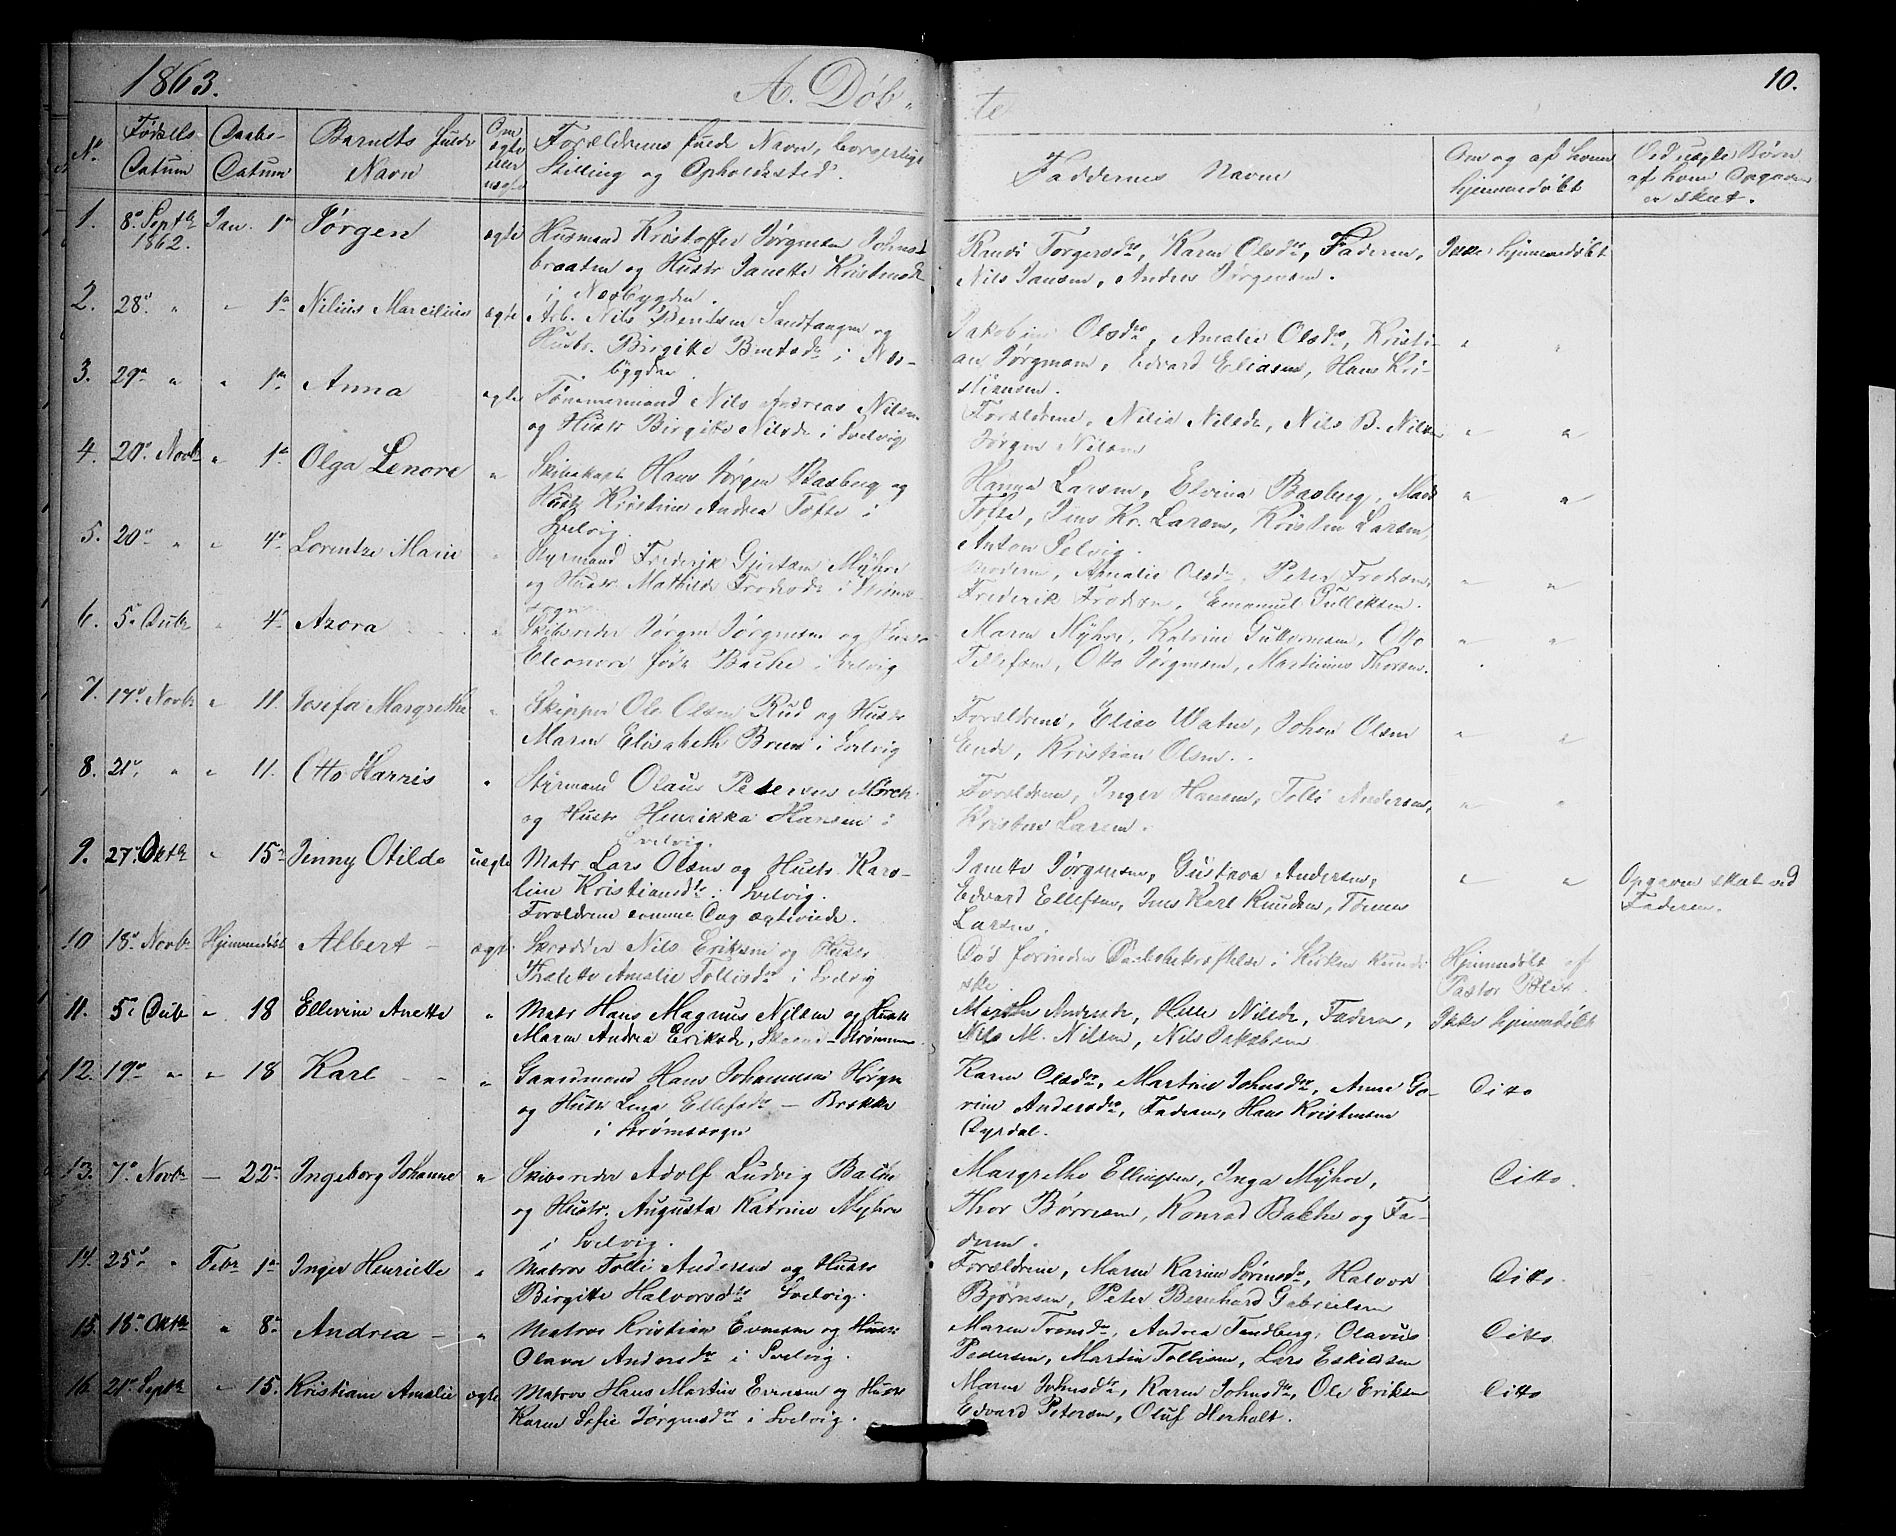 1863.
A. Døb-
te
10.
No.
Fødsels-
Datum
Daabs-
Datum
Barnets fulde
Navn
Om
ægte
eller
uægte
Forældrenes fulde Navn, borgerlige
Stilling og Opholdssted.
Faddernes Navne
Om og af hvem
hjemmedøbt
Ved uægte Børn
af hvem Opgaven
er skeet.
1. 8de Septbr 1862. Jan. 1ste Jørgen ægte
Husmand Kristoffer Jørgensen Johns-
braaten og Hustr Janette Kristensdr
i Nesbygden.
Randi Torgersdr, Karen Olsdr, Faderen,
Nils Jansen, Andres Jørgensen.
Ikke hjemmedøbt
2. 28de " " 1ste Nilius Marcilius ægte
Arb. Nils Bentsen Sandtangen og
Hustr. Birgitte Bentsdr i Nes-
bygden
Olsdr, Amalie Olsdr, Kristi-
an Jørgensen, Edvard Eliasen, Hans Kri-
stiansen.
" "
3. 29de " " 1ste Anna ægte
Tømmermand Nils Andreas Nilsen
og Hustr Birgitte Nilsdr i Svelvig
Forældrene, Nilia Nilsdr, Nils B. Nilsen
Jørgen Nilsen
" "
4. 20de Novbr " 1ste Olga Lenore "
Skibskapt Hans Jørgen Basberg og
Hustr Kristine Andrea Tofte i
Svelvig.
Hanna Larsen, Elvina Basberg, Mads
Tofte, Jens Kr. Larsen, Kristen Larsen
Anton Pelvig.
" "
5. 20de " " 4de Lorentze Marie "
Styrmand Frederik Gjertsen Myhre
og Hustr Mathilde Frodesdr i Strøms-
sogn
Moderen, Amalie Olsdr, Peter Frodesen,
Frederik Frodesen, Emanuel Gulleksen.
" "
6. 5te Debr " 4de Azora "
Skibsreder Jørgen Jørgensen og Hustr
Eleonore født Bache i Svelvig
Maren Myhre, Katrine Guttormsen, Otto
Tollefsen, Otto Jørgensen, Martinius Thorsen.
" "
7. 17de Novbr " 11. Josefa Margrethe "
Skipper Ole Olsen Rud og Hustr
Maren Elisabeth Bruun i Svelvig
Forældrene, Elise Watne, Johan Olsen
Ende, Kristian Olsen.
" "
8. 21de " " 11. Otto Harris "
Styrmand Olaus Petersen Mørch
og Hustr Henrikka Hansen i
Svelvig.
Forældrene, Inger Hansen, Tolli Andersen,
Kristen Larsen.
" "
9. 27de Oktbr " 15de Jenny Otilde uægte
Matr. Lars Olsen og Hustr. Karo-
line Kristiansdtr. Svelvig.
Forældrene samme Dag ægteviede.
Janette Jørgensen, Gustava Andersen,
Edvard Ellefsen, Jens Karl Knudsen, Tønnes
Larsen.
" "
Opgaven skeet ved
Faderen.
10 18de Novbr Hjemmedøbt Albert - ægte
Skrædder Nils Eriksen og Hustr
Thalette Amalie Tollisdr i Svelvig
Død forinden Daabsbekræftelse i Kirken kunde
ske.
Hjemmedøbt af
Pastor Blix.
11. 5te Debr " 18 Ellevine Anette "
Matr Hans Magnus Nilsen og Hustr
Maren Andrea Eriksdr, - Strømmen
Marthe Andersdr, Helle Nilsdr, Faderen,
Nils M. Nilsen, Nils Jakobsen
Ikke hjemmedøbt
12. 19de " " 18 Karl - - "
Gaardmand Hans Johannesen Horgen
og Hustr Lena Ellefsdr - Brække
i Strømssogn
Karen Olsdr, Martine Johnsdr, Anne Ga-
rine Andersdr, Faderen, Hans Kristensen
Dyrdal.
Ditto
13. 7de Novbr - 22de Ingeborg Johanne "
Skibsreder Adolf Ludvig Bache
og Hustr. Augusta Katrine Myhre
i Svelvig.
Margrethe Ellingsen, Inga Myhre,
Thor Børresen, Konrad Bakke og Fa-
deren.
Ditto.
14. 25de " Febr 1ste Inger Henriette "
Matros Tolli Andersen og Hustr
Birgitte Halvorsdtr Svelvig.
Forældrene, Maren Karine Sørensdr, Halvor
Bjørnsen, Peter Bernhard Gabrielsen
Ditto.
15. 18de Oktbr " 8de Andrea - "
Matros Kristian Evensen og Hustr
Olava Andersdr i Svelvig.
Maren Tronsdr, Andrea Tandberg, Olavus
Pedersen, Martin Tollisen, Lars Eskildsen
Ditto
16. 21de Septbr " 15. Kristiane Amalie ægte
Matros Hans Martin Evensen og Hustr
Karen Sofie Jørgensdr i Svelvig.
Maren Johnsdr, Karen Johnsdr, Ole Eriksen
Edvard Petersen, Oluf Herholt.
Ditto